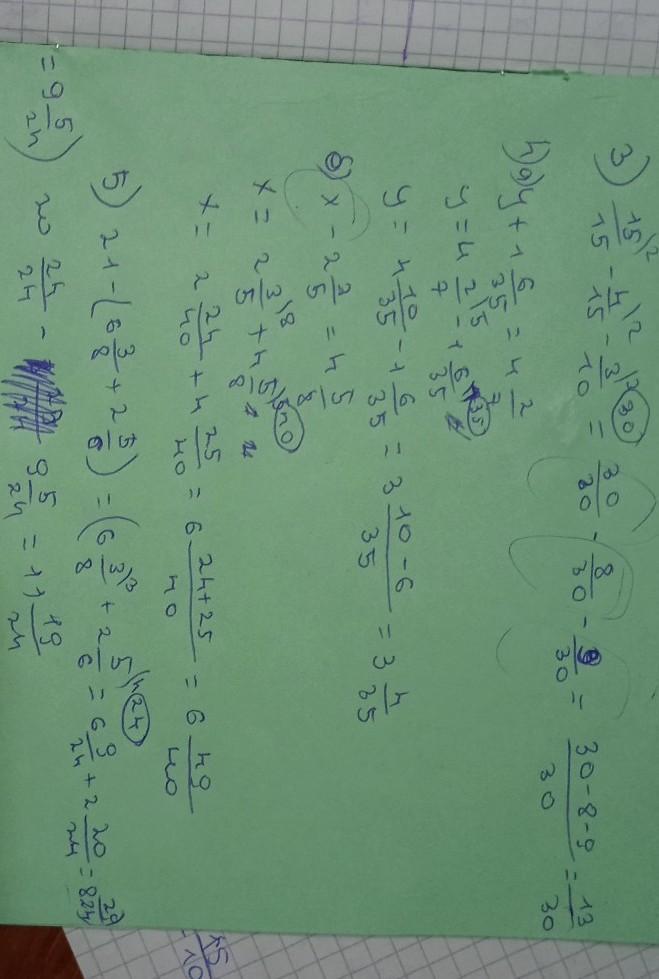 3) 15/15 \2 - 4/15 \2 - 3/10 \3 (30) = 30/30 - 8/30 - 9/30 = (30-8-9)/30 = 13/30
4) а) y + 1 6/35 = 4 2/7
y = 4 2/7 \5 - 1 6/35 (35)
y = 4 10/35 - 1 6/35 = 3 (10-6)/35 = 3 4/35
б) x - 2 3/5 = 4 5/8
x = 2 3/5 \8 + 4 5/8 \5 (40)
x = 2 24/40 + 4 25/40 = 6 (24+25)/40 = 6 49/40
5) 21 - (6 3/8 + 2 5/6) = (6 3/8 \3 + 2 5/6 \4 (24) = 6 9/24 + 2 20/24 = 8 29/24
= 9 5/24) 20 24/24 - 9 5/24 = 11 19/24